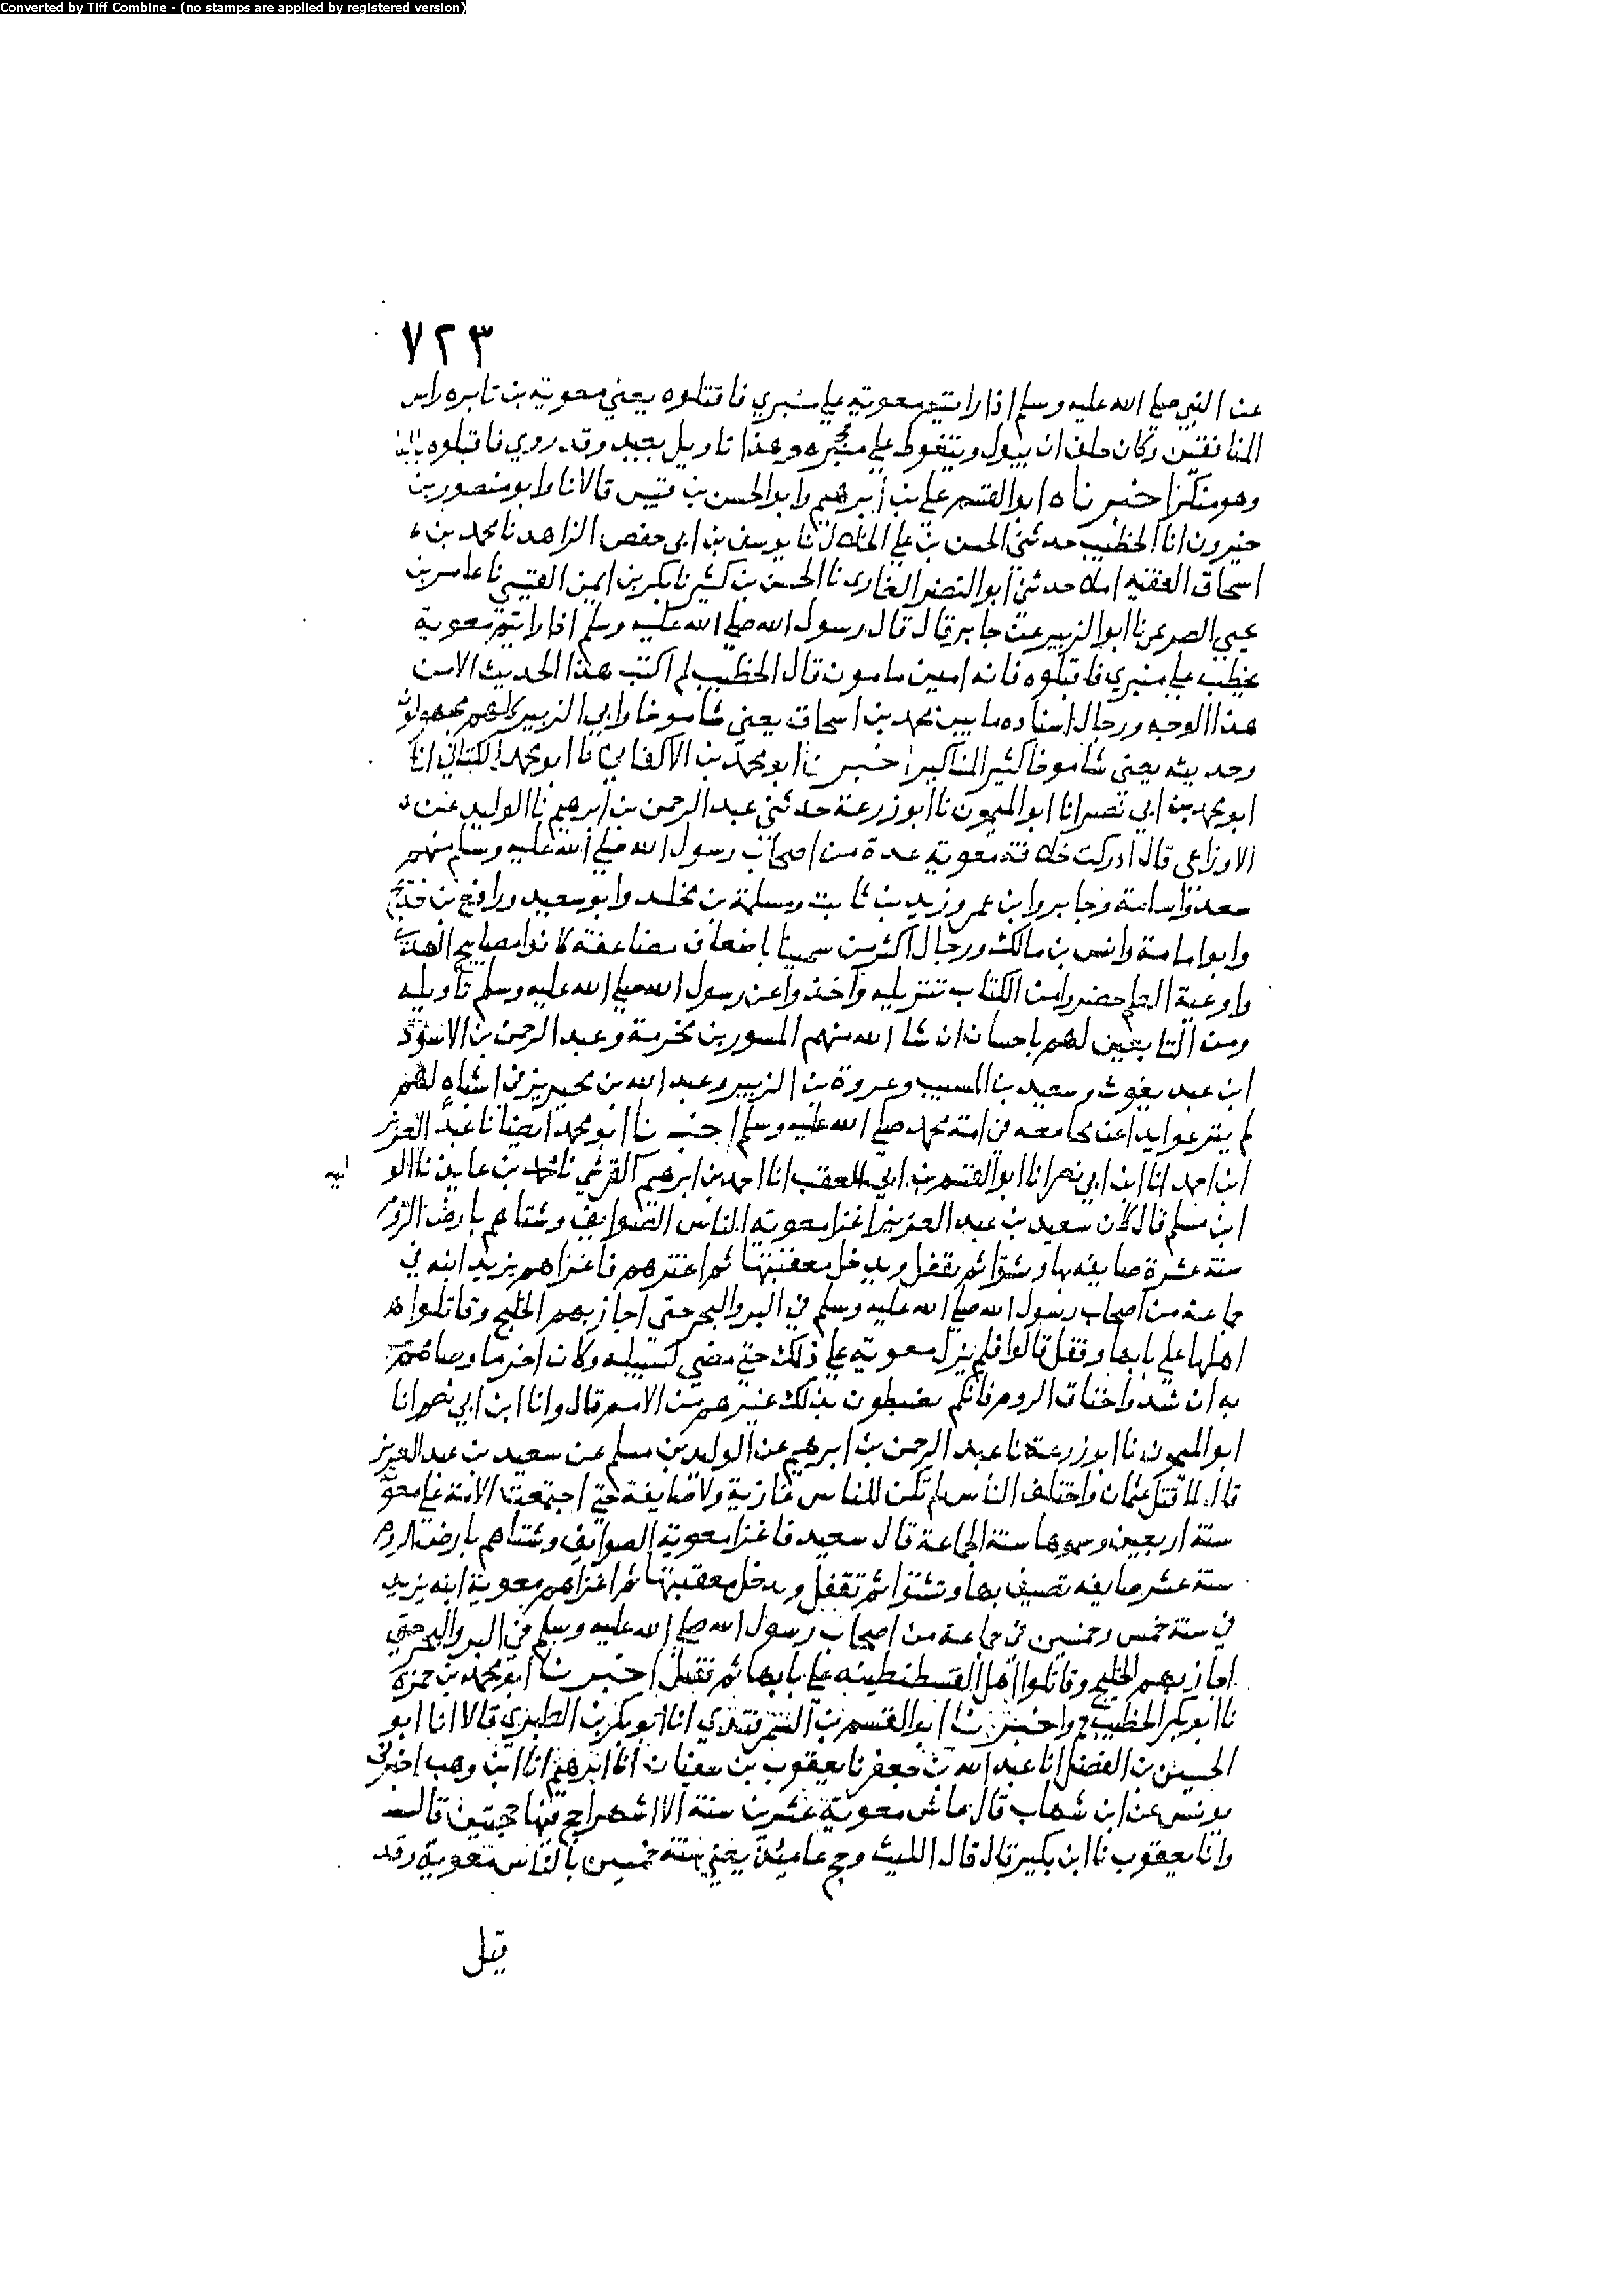 Converted by Tiff Combine - (no stamps are applied by registered version)
٧٢٣
عن النبي صلي الله عليه وسلم اذا رايتم معوية علي منبري فاقتلوه يعني معوية بن تابوه راس
المنافقين وكان حلف ان يبول ويتغوط علي منبره وهذا تاويل بعيد وقد روي فاقبلوه بالبا
وهو منكر اخبرناه ابو القسم علي بن ابرهيم وابو الحسن بن قبيس قالا نا وابو منصور بن
خيرون انا الخطيب حدثني الحسن بن علي الخلال نا يوسف بن ابي حفص الزاهد نا محمد بن
اسحاق الفقيه املا حدثني ابو النضر الغازي نا الحسن بن كثير نا بكر بن ايمن القيسي نا عامر بن
يحيي الصريمي نا ابو الزبير عن جابر قال قال رسول الله صلي الله عليه وسلم اذا رايتم معوية
يخطب علي منبري فاقبلوه فانه امين مامون قال الخطيب لم اكتب هذا الحديث الا من
هذا الوجه ورجال اسناده ما بين محمد بن اسحاق يعني شاموخا وابي الزبير كلهم مجهولون
وحديثه يعني شاموخا كثير المناكير اخبرنا ابو محمد بن الاكفاني نا ابو محمد الكتاني انا
ابو محمد بن ابي نصر انا ابو الميمون نا ابو زرعة حدثني عبد الرحمن بن ابرهيم نا الوليد عن
الاوزاعي قال ادركت خلافة معوية عدة من اصحاب رسول الله صلي الله عليه وسلم منهم
سعد واسامة وجابر وابن عمر وزيد بن ثابت ومسلمة بن مخلد وابو سعيد ورافع بن خديج
وابو امامة وانس بن مالك ورجال اكثر من سمينا باضعاف مضاعفة كانوا مصابيح الهدي
واوعية العلم حضروا من الكتاب تنزيله واخذوا عن رسول الله صلي الله عليه وسلم تاويله
ومن التابعين لهم باحسان ان شا الله منهم المسور بن مخرمة وعبد الرحمن بن الاسود
ابن عبد يغوث وسعيد بن المسيب وعروة بن الزبير وعبد الله بن محيريز في اشباه لهم
لم ينزعوا يدا عن مجامعه في امة محمد صلي الله عليه وسلم اخبرنا ابو محمد ايضا نا عبد العزيز
ابن احمد انا ابن ابي نصر انا ابو القسم بن ابي العقب انا احمد بن ابرهيم القرشي نا محمد بن عايذ نا الو
ليد
ابن مسلم قال قال سعيد بن عبد العزيز اغزا معوية الناس الصوايف وشتاهم بارض الروم
ستة عشرة صايفة بها وشتوا ثم تقفل ويدخل معقبتها ثم اغزهم فاغزاهم يزيد ابنه في
جماعة من اصحاب رسول الله صلي الله عليه وسلم في البر والبحر حتي اجاز بهم الخليج وقاتلوا
اهلها علي بابها وقفل قالوا فلم يزل معوية علي ذلك حتي مضي لسبيله وكان اخر ما وصاهم
به ان شدوا خناق الروم فانكم تضبطون بذلك غيرهم من الامم قال وانا ابن ابي نصر انا
ابو الميمون نا ابو زرعة نا عبد الرحمن بن ابرهيم عن الوليد بن مسلم عن سعيد بن عبد العزيز
قال لما قتل عثمان واختلف الناس لم تكن للناس غازية ولا صايفة حتي اجتمعت الامة علي معوية
سنة اربعين وسموها سنة الجماعة قال سعيد فاغزا معوية الصوايف وشتاهم بارض الروم
ستة عشر صايفة تصيف بها وتشتوا ثم تقفل ويدخل معقبتها ثم اغزاهم معوية ابنه يزيد
في سنة خمس وخمسين في جماعة من اصحاب رسول الله صلي الله عليه وسلم في البر والبحر حتي
اجاز بهم الخليج وقاتلوا اهل القسطنطينه علي بابها ثم قفل اخبرنا ابو محمد بن حمزه
نا ابو بكر الخطيب ح واخبرنا ابو القسم بن السمرقندي انا ابو بكر بن الطبري قالا انا ابو
الحسين بن الفضل انا عبد الله بن جعفر نا يعقوب بن سفيان انا ابرهيم انا ابن وهب اخبرني
يونس عن ابن شهاب قال عاش معوية عشرين سنة الا اشهرا حج فيها حجتين قال
وانا يعقوب نا ابن بكير قال قال الليث وحج عاميئذ يعني سنة خمسين بالناس معوية وقد
قيل